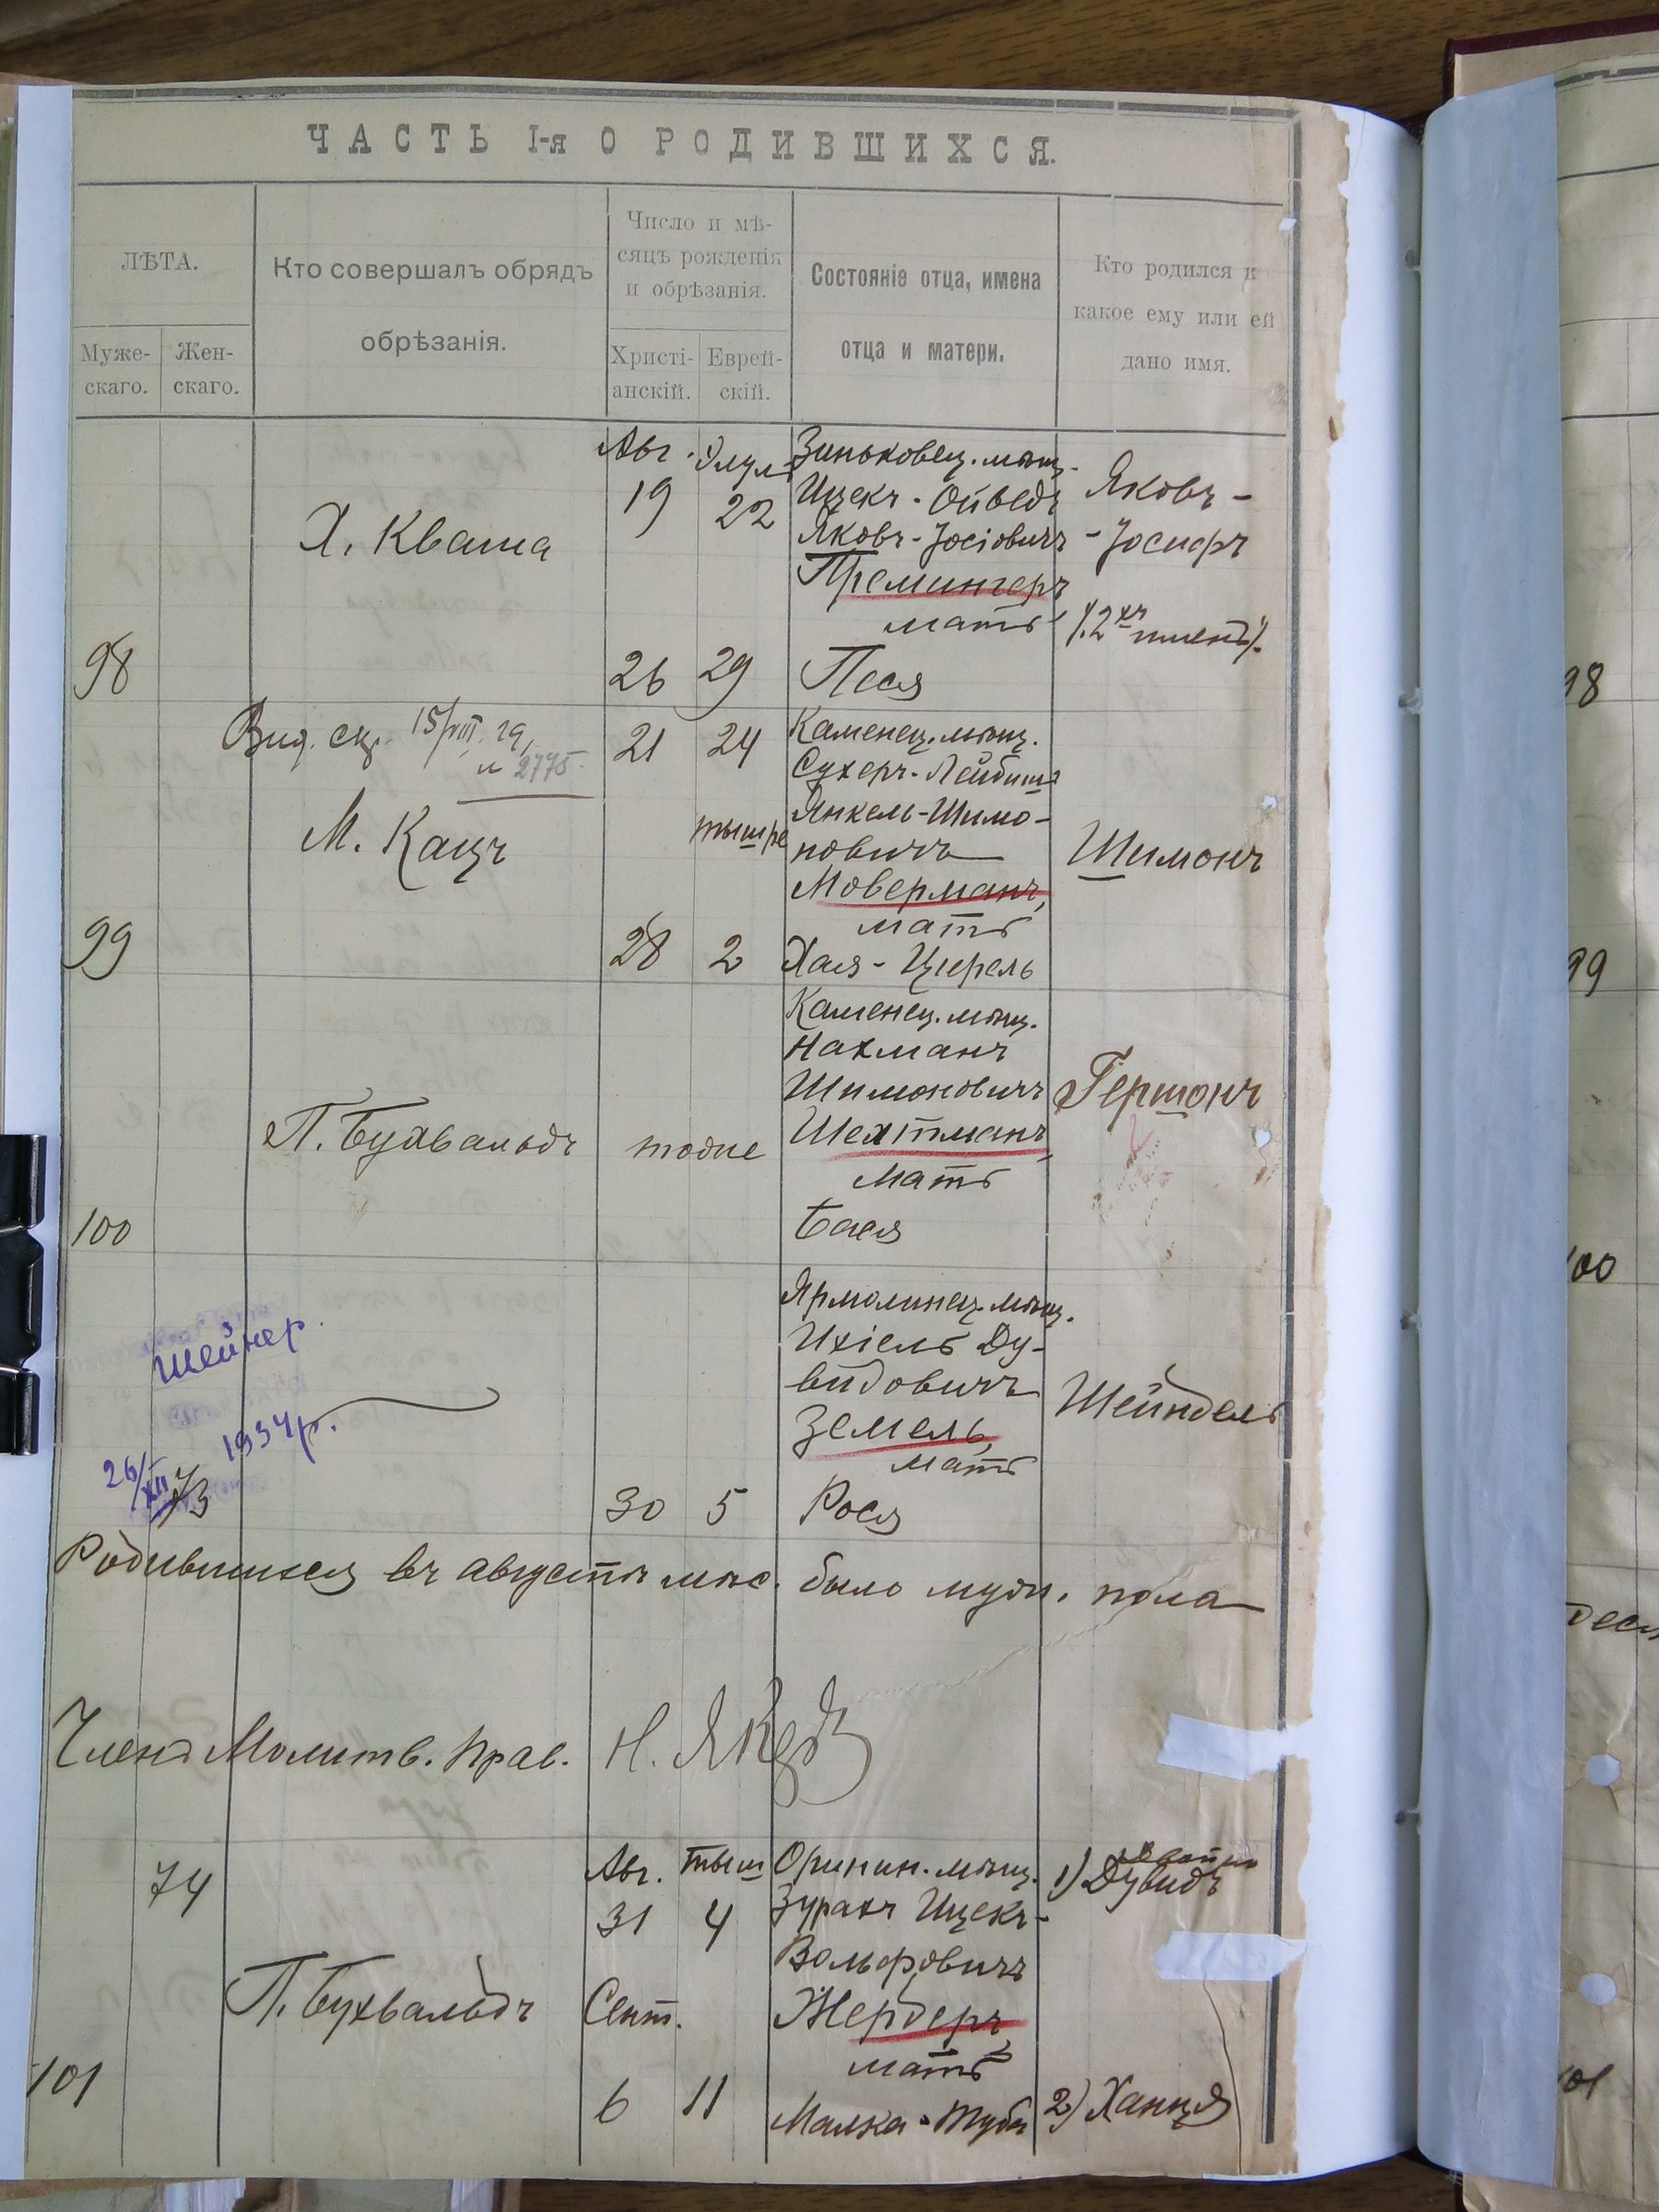 ЧАСТЬ I-я О РОДИВШИХСЯ.
ЛѢТА.
Муже-
скаго.
Жен-
скаго.
Кто совершалъ обрядъ
обрѣзанія.
Число и мѣ-
сяцъ рожденія
и обрѣзанія.
Христі-
анскій.
Еврей-
скій.
Состояніе отца, имена
отца и матери.
Кто родился и
какое ему или ей
дано имя.
98
Х. Кваша
Авг. Элул
19 22
26 29
Зиньковец. мѣщ.
Ицекъ-Ойведъ
Яковъ-Іосіовичъ
Премингеръ
мать
Песя
Яковъ-
-Іосифъ
/.2хъ имен./.
99
Выд. св. 15/VIII 29,
№ 2775
М. Кацъ
21 24
тышре
28 2
Каменец. мѣщ.
Сухеръ-Лейбишъ
Янкель-Шимо-
новичъ
Моверманъ,
мать
Хая-Цирель
Шимонъ
100
П. Бухвальдъ
тоже
Каменец. мѣщ.
Нахманъ
Шимоновичъ
Шехтманъ,
мать
Бася
Гершонъ
Шейнер.
26/XII 1934р.
73
30 5
Ярмолинец. мѣщ.
Ихіель Ду-
видовичъ
Земель,
мать
Рося
Шейндель
Родившихся въ августѣ мѣс. было муж. пола
Членъ Молитв. Прав. Н.
101
74
П. Бухвальдъ
Авг. тыш
31 4
Сент.
6 11
Оринин. мѣщ.
Зурахъ Ицекъ-
Вольфовичъ
Жердеръ,
мать
Малка-Туба
двойня
1) Дувидъ
2) Ханця
98
99
100
101